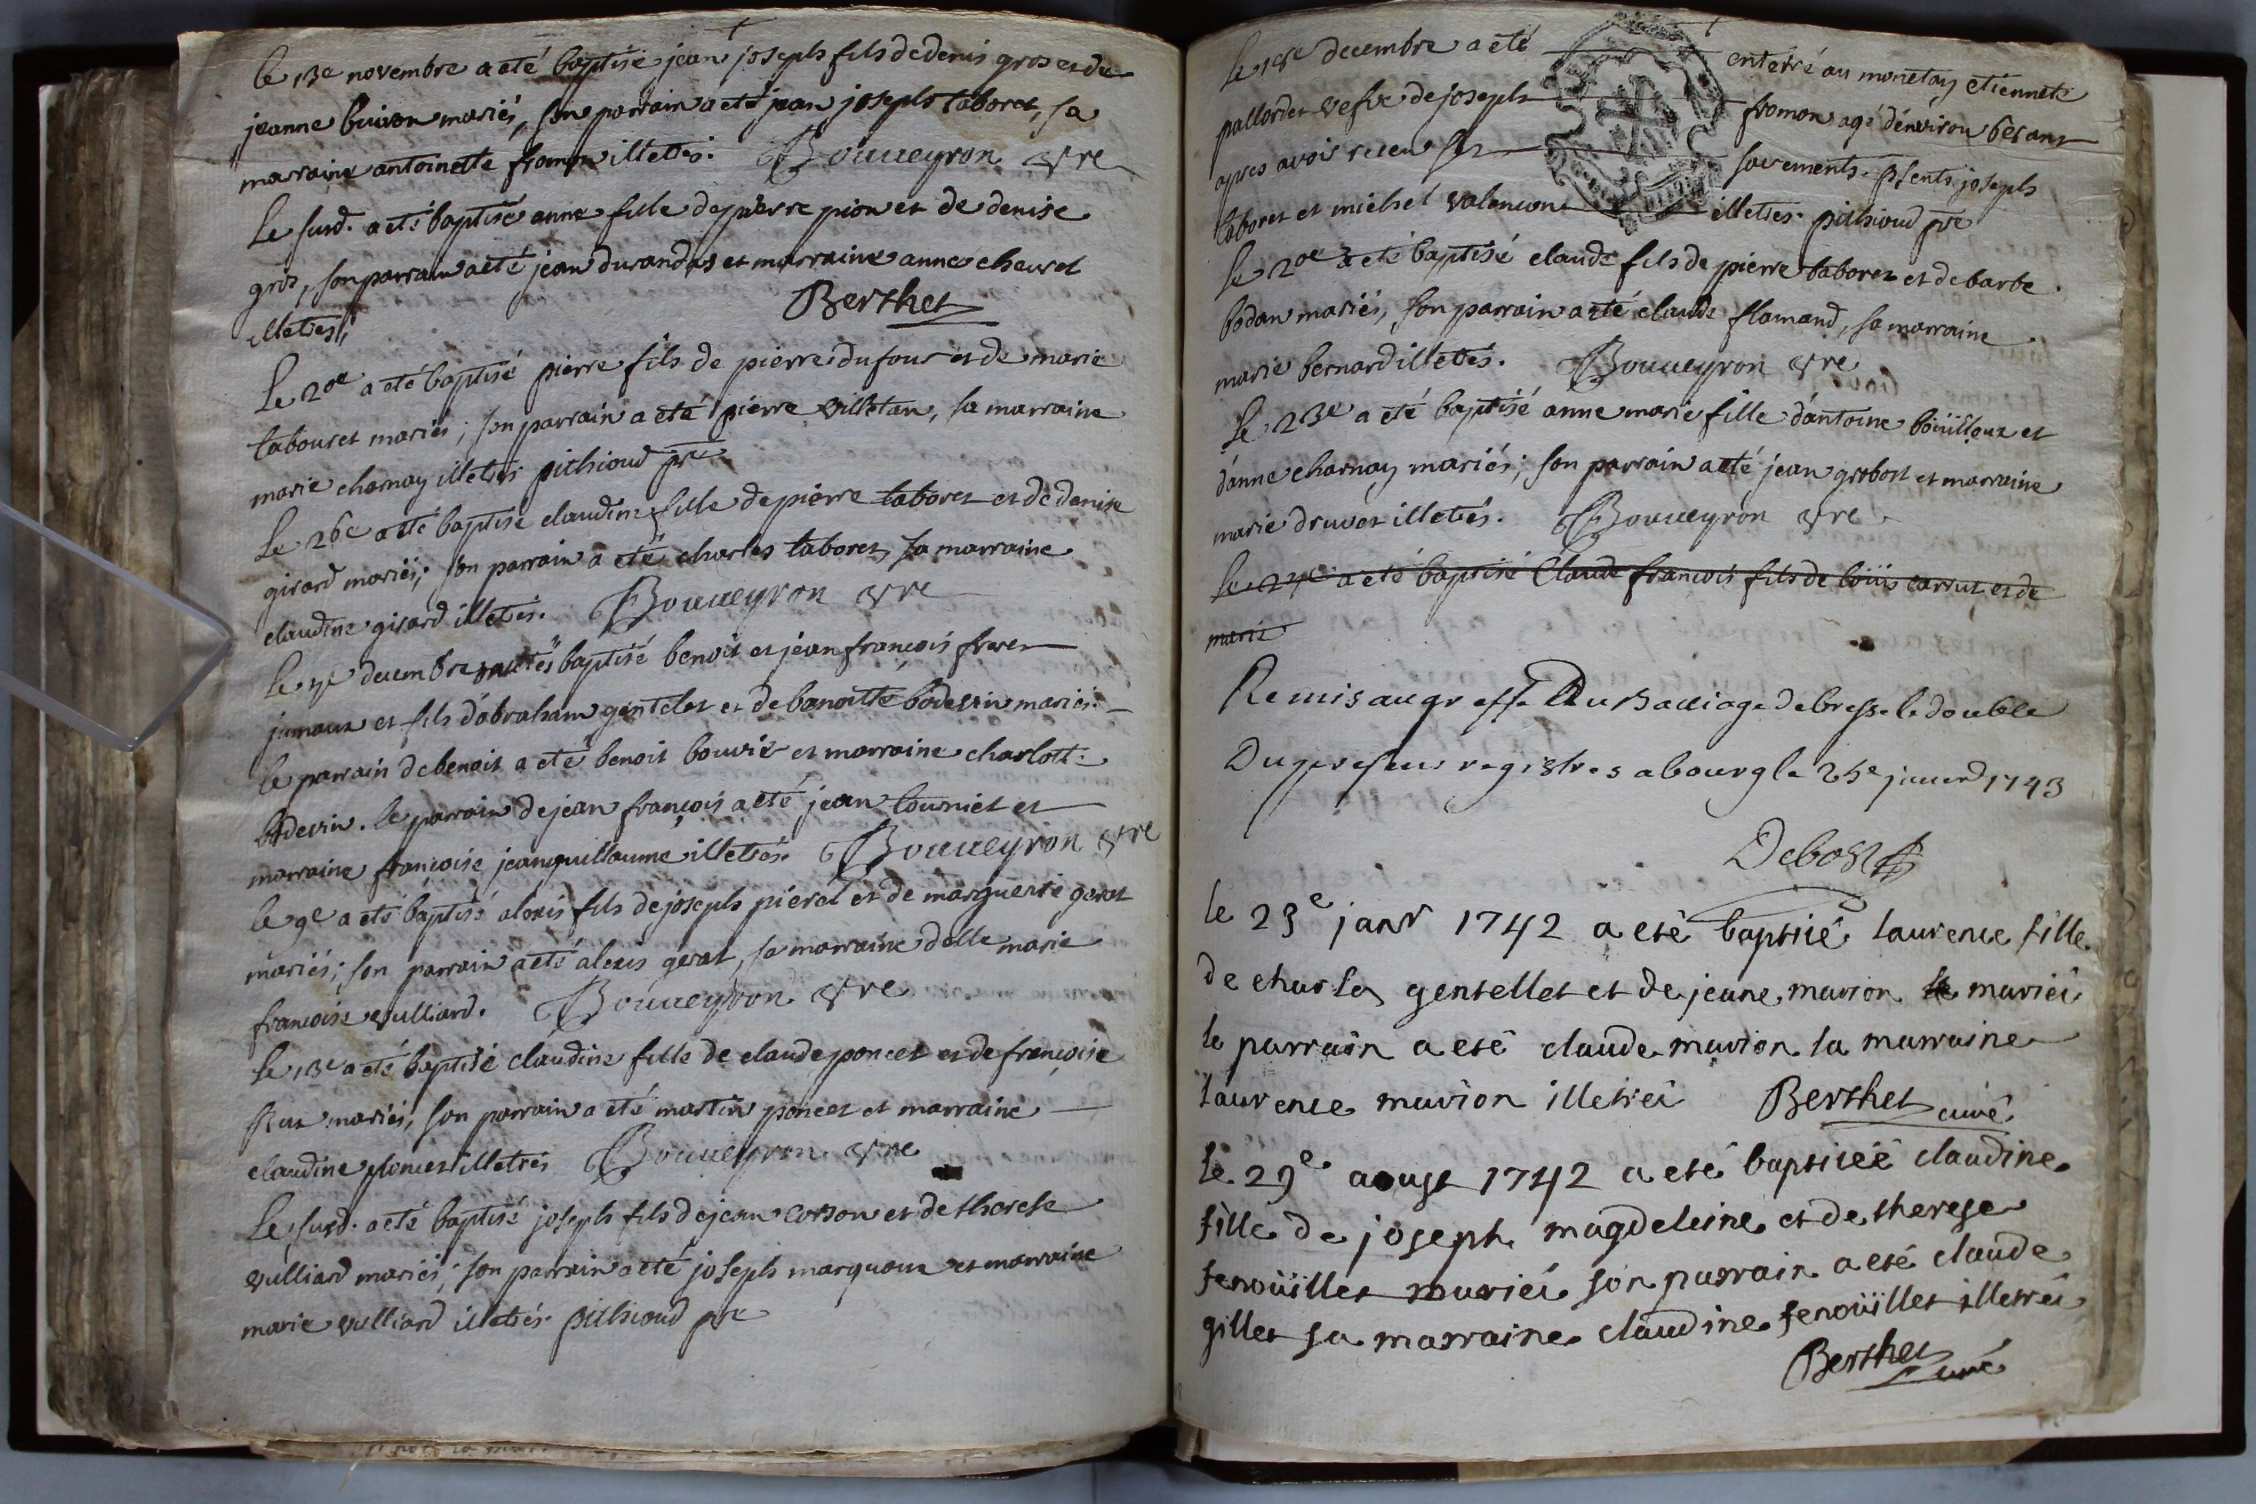 le 13e novembre a eté baptisé jean joseph fils de denis gros et de
jeanne buiron mariés, son parrain a eté jean joseph taboret, sa
marraine antoinette fromon illetrés. Bouueyron vre
Le susd. a eté baptisé anne fille de pierre pion et de denise
gris, son parrain a eté jean durandas et marraine anne chevret
illetrés, Berthet
Le 20e a eté baptisé pierre fils de pierre dufour et de marie
tabouret mariés; son parrain a eté pierre villetan, sa marraine
marie charnay illetrés pithioud pre
Le 26e a eté baptisé claudine fille de pierre taboret et de denise
girard mariés; son parrain a eté charles taboret, sa marraine
claudine girard illetrés. Bouueyron vre
le 7e decembre ont étés baptisé benoit et jean françois freres
jumaux et fils d'abraham gentelet et de benoitte bodevin mariés.
le parrain de benoit a eté benoit bouvié et marraine charlotte
bodevin. le parrain de jean françois a eté jean tourniet et
marraine françoise jeanguillaume illetrés. Bouueyron vre
le 9e a eté baptisé alexis fils de joseph piérel et de marguerite gerat
mariés; son parrain a eté alexis gerat, sa marraine delle marie
françoise vulliard. Bouueyron vre
Le 13e a eté baptisé claudine fille de claude poncet et de françoise
mariés, son parrain a eté martin poncet et marraine
claudine poncet illetrés Bouueyron vre
Le susd. a eté baptisé joseph fils de jean corson et de therese
vulliard mariés; son parrain a eté joseph marquoux et marraine
marie vulliard illetrés pithioud pre
Le decembre a eté enterré au monetay etiennete
pallordet vefve de joseph fromon agé d'environ 60 ans
apres avoir receu ses sacrements. psents joseph
taboret et michel valancon illetres. pithioud pre
Le 20e a eté baptisé claude fils de pierre taboret et de barbe
bodan mariés, son parrain a eté claude flamand, sa marraine
marie bernard illetrés. Bouueyron vre
Le 23e a eté baptisé anne marie fille d'antoine boüilloux et
d'anne charnay mariés; son parrain a eté jean grobost et marraine
marie druvet illetrés. Bouueyron vre
Le 27e a eté baptisé Claude françois fils de loüis carrut et de
marie
Remis au greffe Du Bailliage de bresse le double
Du present registres a bourg le 25e janvier 1743
Debost
le 23e janr 1742 a eté baptiée laurence fille
de charles gentellet et de jeane marion mariéi
le parrain a eté claude marion la marraine
laurence marion illetréi Berthet curé
Le 29e aougt 1742 a eté baptiéé claudine
fille de joseph magdeleine et de therese
fenoüillet mariéi son parrain a eté claude
gillet sa marraine claudine fenoüillet illetréi
Berthet curé